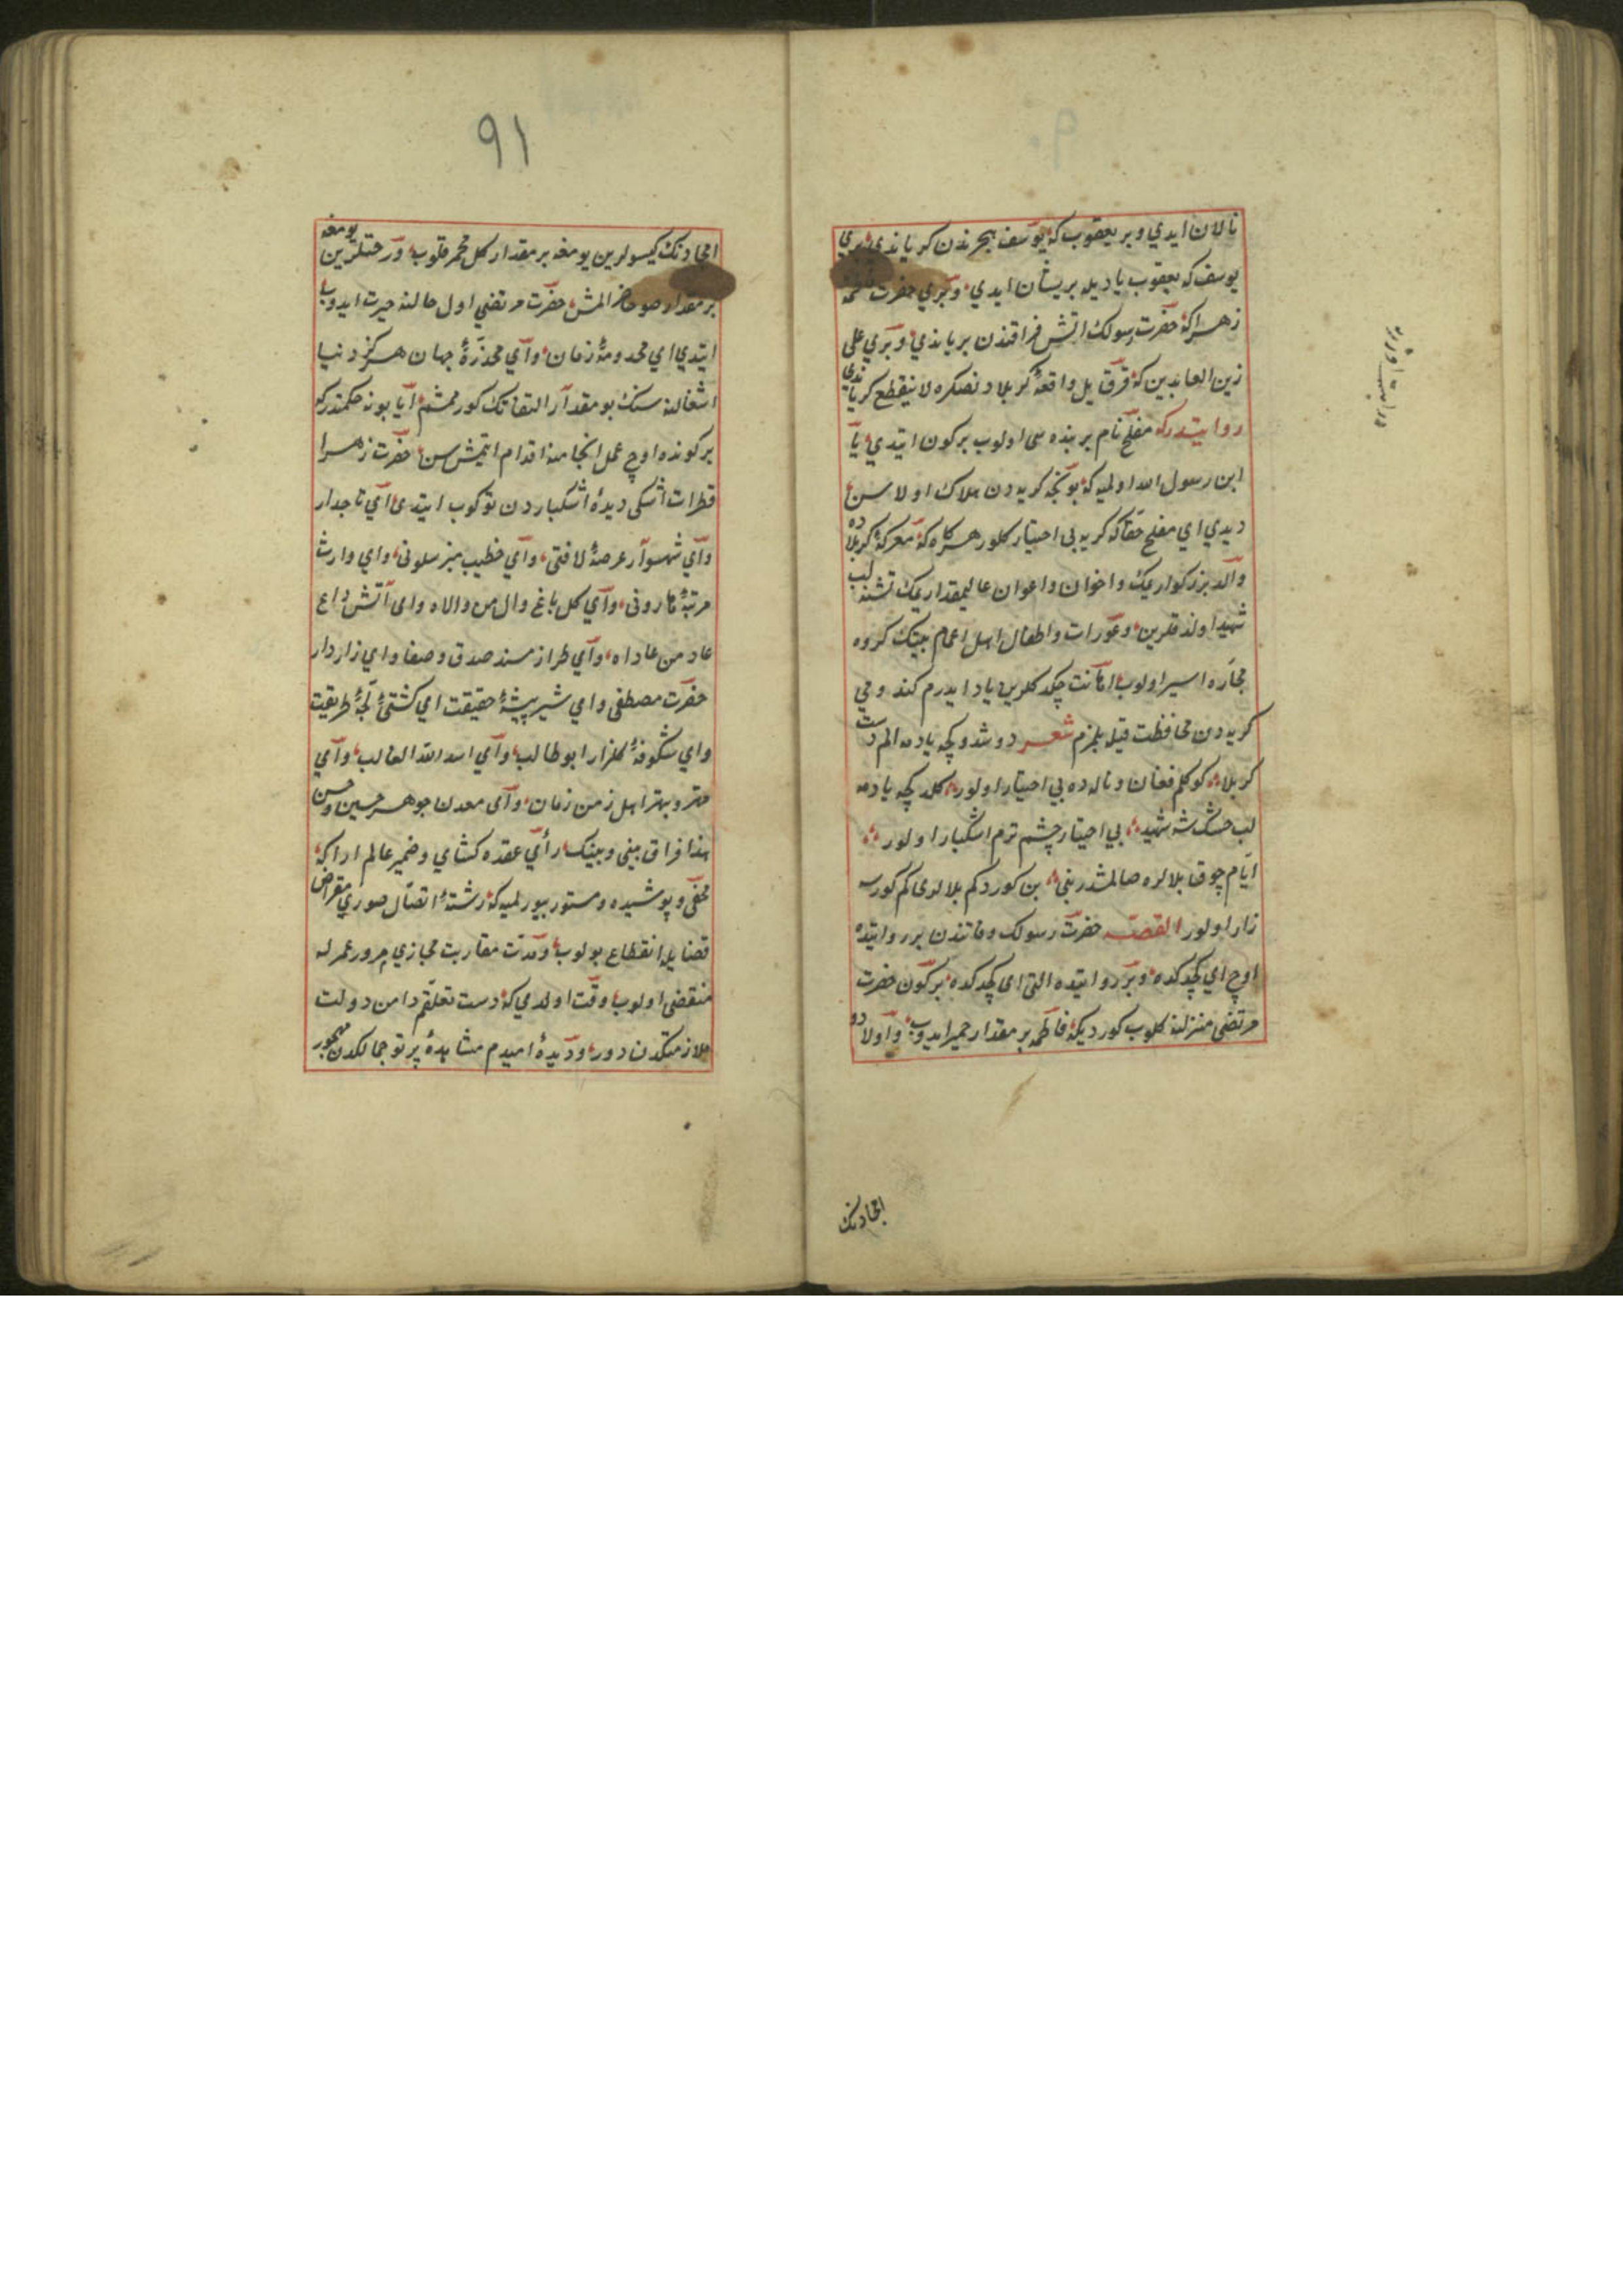 نالان ايدي وبر يعقوب كه يوسف هجرندن كرياندي بري
يوسف كه يعقوب ياديله پريشان ايدي وبري حضرت فاطمهٔ
زهرا كه حضرت رسولك اتش فراقندن برياندي وبري علي
زين العابدين كه قرق ييل واقعهٔ كربلادنصكره لاينقطع كرياندي
روايتدركه مفلح نام بر بنده سي اولوب بركون ايتدي يا
ابن رسول الله اولميه كه بونجه كريه دن هلاك اولاسن
ديدي اي مفلح حقا كه كريه بي اختيار كلور هركاه كه معركهٔ كربلاده
والد بزركواريمك واخوان واعوان عاليمقداريمك تشنه لب
شهيد اولدقلرين وعورات واطفال اهل اعمام بيتك كروه
مجاره اسير اولوب اهانت چكدكلرين ياد ايدرم كندومي
كريه دن محافظت قيله بلمزم شعر دوشدوكجه ياده الم دشت
كربلا كوكلم فغان وناله ده بي اختيار اولور كلدكجه ياده
لب خشك شه شهيد بي اختيار چشم ترم اشكبار اولور
ايام چوق بلالره صالمشدر بني بن كوردكم بلالري كم كورسه
زار اولور القصه حضرت رسولك وفاتندن بر روايتده
اوچ اي كچدكده وبر روايتده التي اي كچدكده بركون حضرت
مرتضي منزلنه كلوب كورديكه فاطمه بر مقدار خمير ايدوب واولاد
امجادنك
امجادنك كيسولرين يومغه بر مقدار كل مخمر قلوب ورختلرين يومغه
بر مقدار صو حاضرالمش حضرت مرتضي اول حالنه حيرت ايدوب
ايتدي اي مخدومهٔ زمان واي مخدرهٔ جهان هركز دنيا
اشغالنه سنك بو مقدار التفاتك كورممشم ايا بونه حكمتدركه
بركونده اوچ عمل انجامنه اقدام ايتمش سن حضرت زهرا
قطرات اشكي ديدهٔ اشكباردن توكوب ايتدي اي تاجدار
واي شهسوار عرصهٔ لافتي واي خطيب منبر سلوني واي وارث
مرتبهٔ هاروني واي كل باغ وال من والاه واي آتش داغ
عاد من عاداه واي طراز مسند صدق وصفا واي رازدار
حضرت مصطفي واي شير بيشهٔ حقيقت اي كشتئ لجهٔ طريقت
واي شكوفهٔ كلزار ابوطالب واي اسد الله الغالب واي
مهتر وبهتر اهل زمن زمان واي معدن جوهر حسين وحسن
هذا فراق بيني وبينك رأي عقده كشاي وضمير عالم اراكه
مخفي وپوشيده ومستور بيورلميه كه رشتهٔ اتصال صوري مقراض
قضا يله انقطاع بولوب ومدت مقاربت مجازي مرور عمرله
منقضي اولوب وقت اولدي كه دست تعلقم دامن دولت
ملازمتكدن دور وديدهٔ اميدم مشاهدهٔ پرتو جمالكدن مهجور